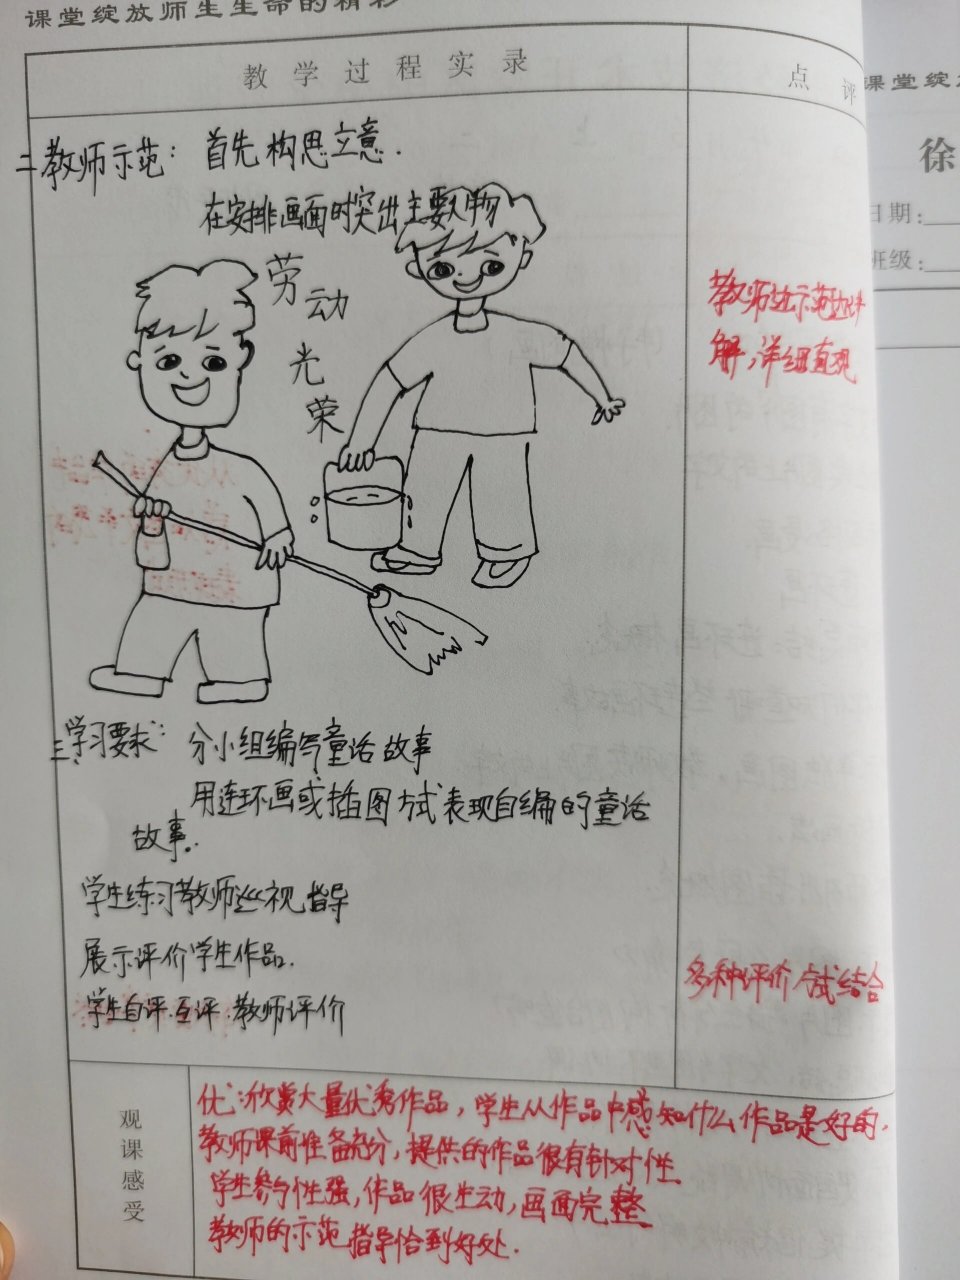 课堂绽放师生生命的精彩
教学过程实录
点评
二教师示范：首先构思立意.
在安排画面时突出主要人物
劳动
光荣
教师边示范边讲
解，详细直观
三.学习要求：分小组编写童话故事
用连环画或插图方式表现自编的童话
故事.
学生练习教师巡视指导
展示评价学生作品.
学生自评.互评.教师评价
多种评价方式结合
观课感受
优：欣赏大量优秀作品，学生从作品中感知什么作品是好的.
教师课前准备充分，提供的作品很有针对性
学生参与性强，作品很生动，画面完整
教师的示范指导恰到好处.
课堂绽
徐
日期：
班级：